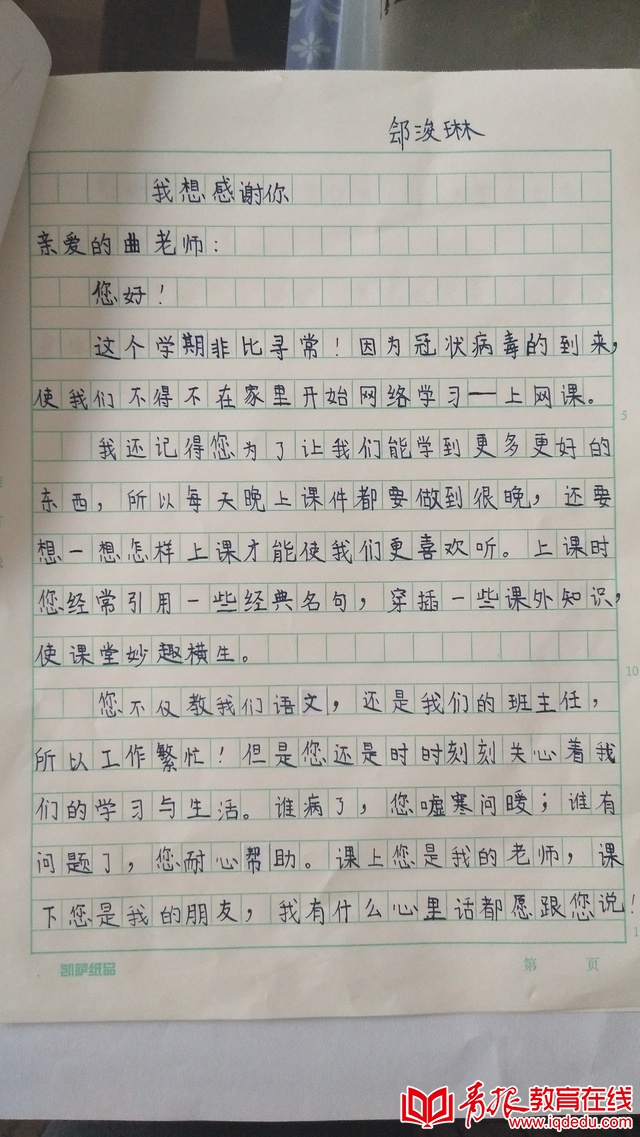 郐浚琳
我想感谢你
亲爱的曲老师：
您好！
这个学期非比寻常！因为冠状病毒的到来，
使我们不得不在家里开始网络学习——上网课。
我还记得您为了让我们能学到更多更好的
东西，所以每天晚上课件都要做到很晚，还要
想一想怎样上课才能使我们更喜欢听。上课时
您经常引用一些经典名句，穿插一些课外知识，
使课堂妙趣横生。
您不仅教我们语文，还是我们的班主任，
所以工作繁忙！但是您还是时时刻刻关心着我
们的学习与生活。谁病了，您嘘寒问暖；谁有
问题了，您耐心帮助。课上您是我的老师，课
下您是我的朋友，我有什么心里话都愿跟您说！
5
10
1
凯萨纸品
第 页
青报教育在线
www.iqdedu.com